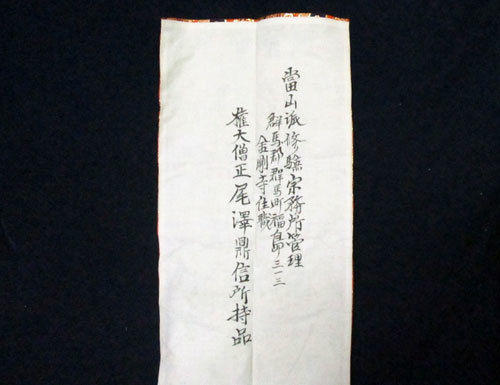 當山派修驗宗務所管理
群馬郡群馬町福島三一三
金剛寺住職
権大僧正尾澤鼎信所持品